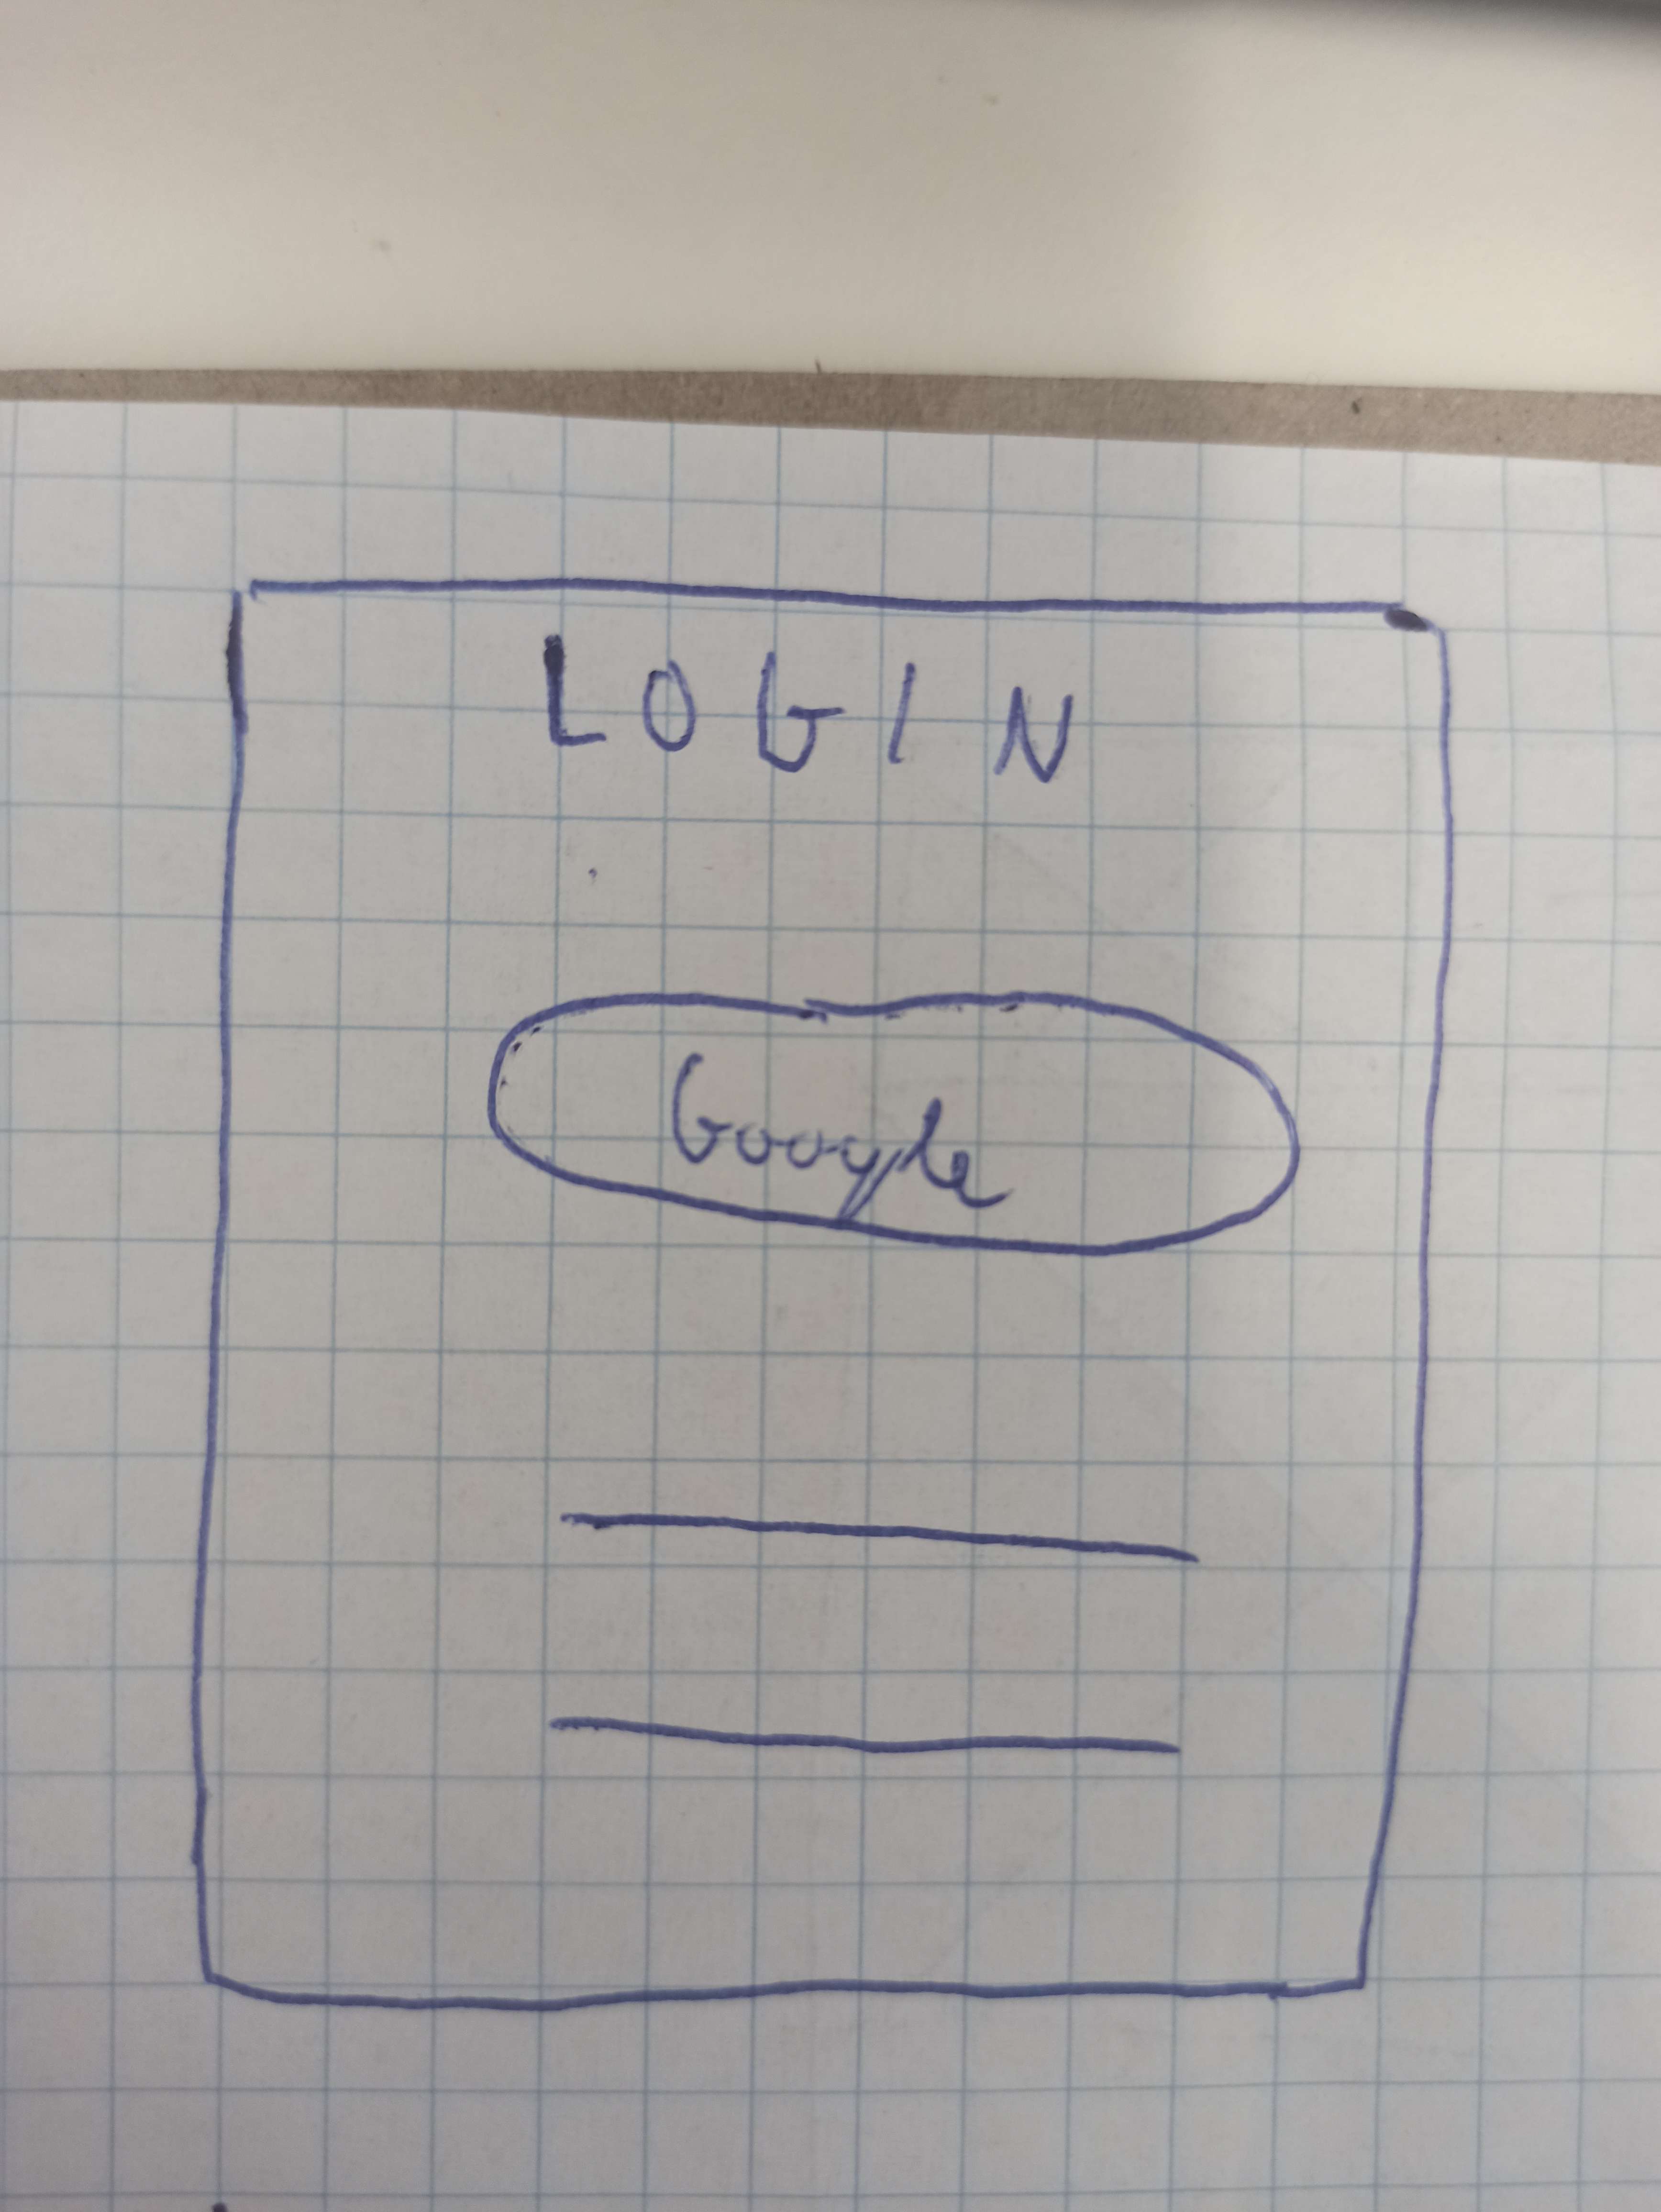 LOGIN
Google